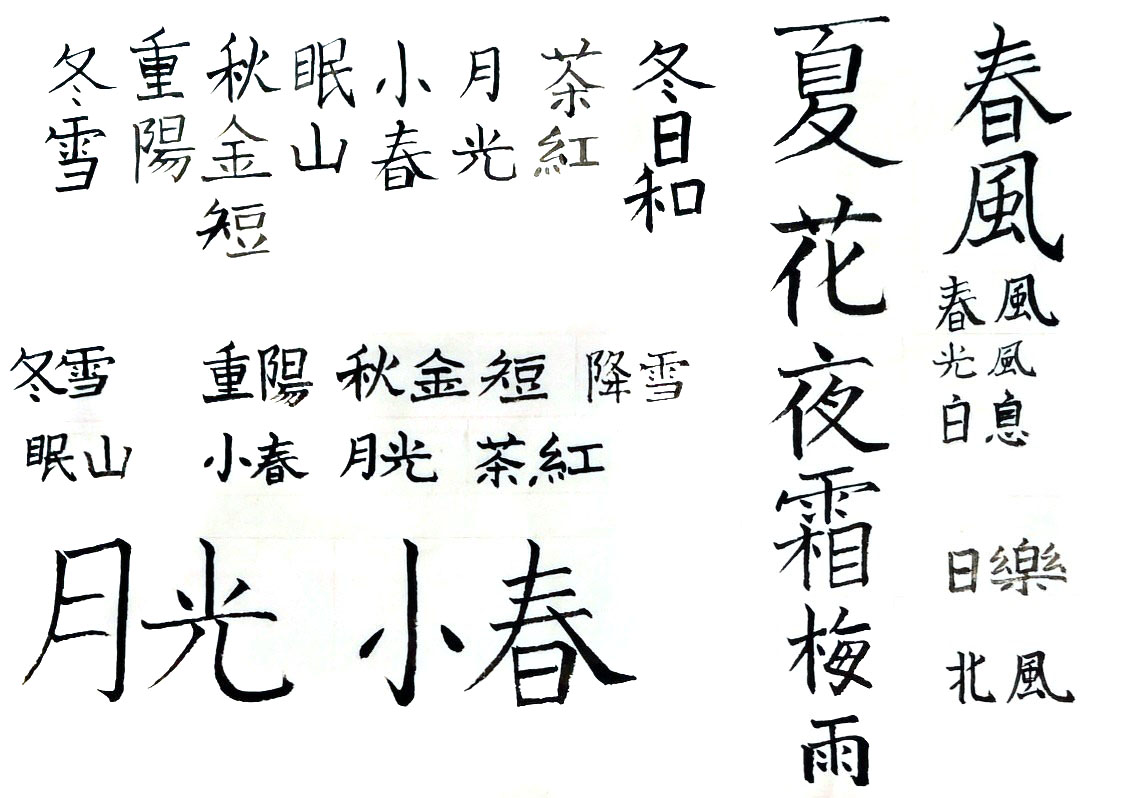 春風
春風
光風
白息
日樂
北風
夏花夜霜梅雨
冬日和
茶紅
月光
小春
眠山
秋金短
重陽
冬雪
冬雪 重陽 秋金短 降雪
眠山 小春 月光 茶紅
月光 小春